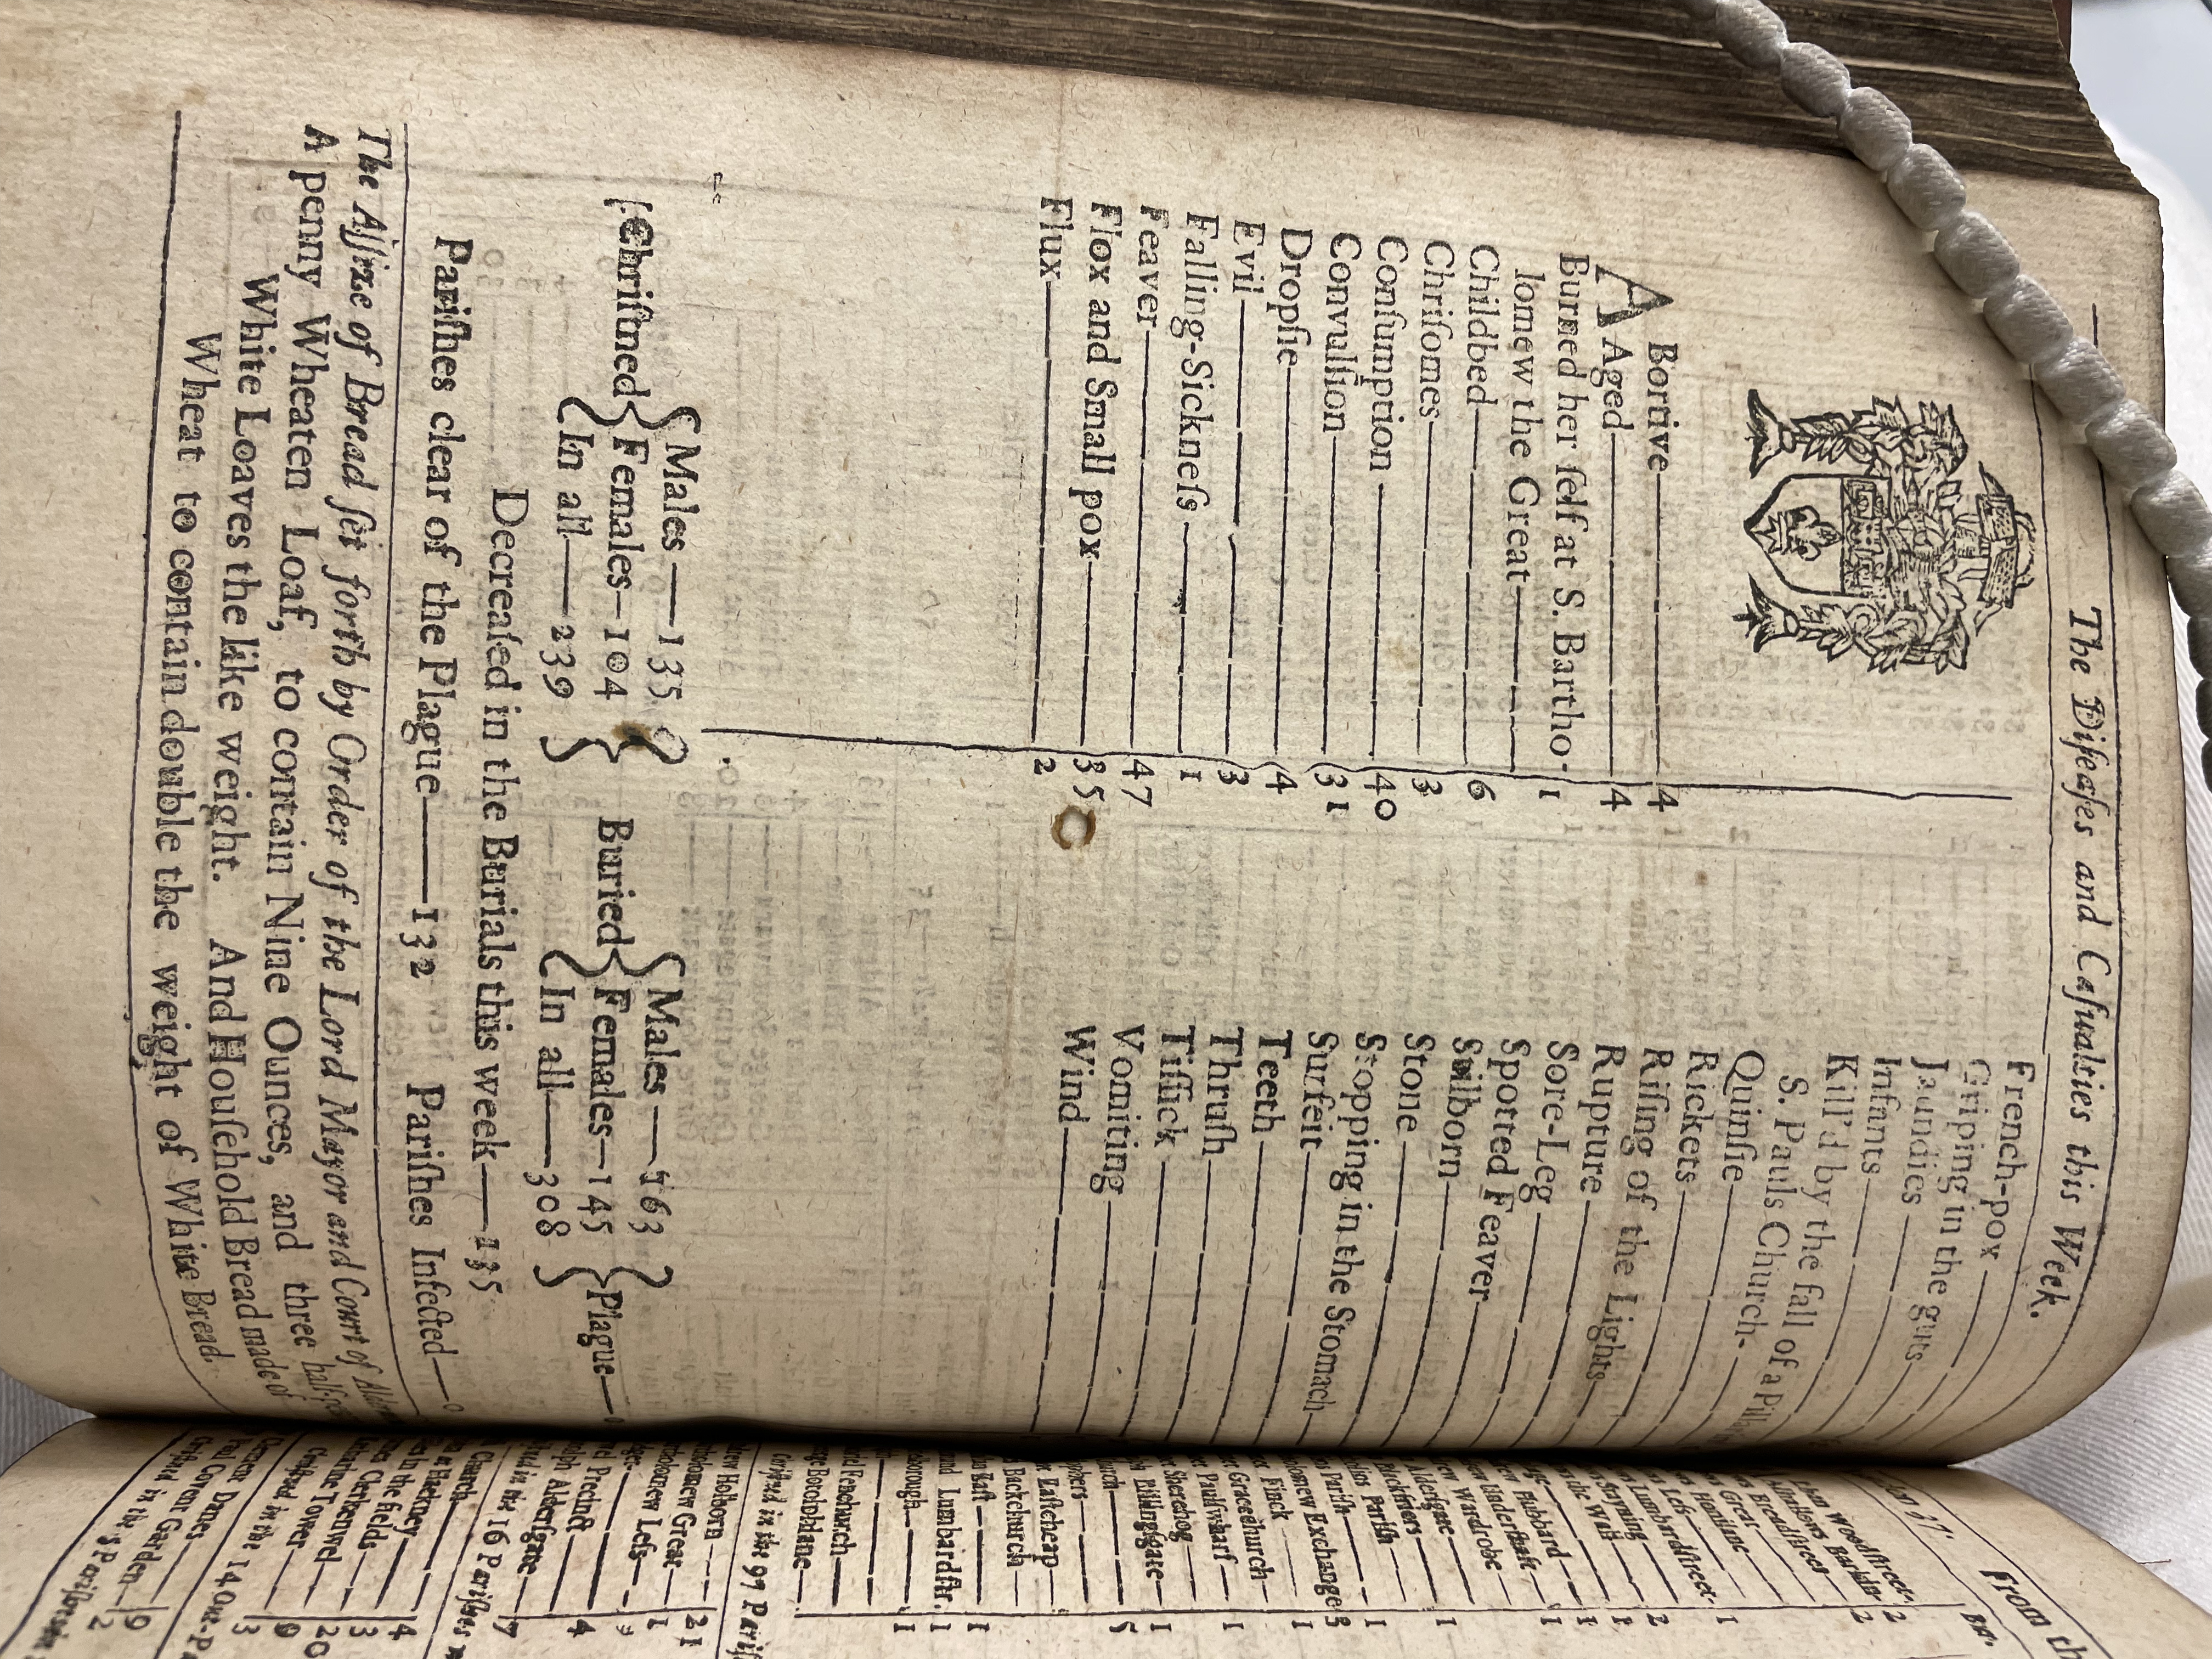 The Diſeaſes and Caſualties this Week.
ABortive——4
Aged——4
Burned her ſelf at S. Bartho-
lomew the Great——1
Childbed——6
Chriſomes——3
Conſumption——40
Convulſion——31
Dropſie——4
Evil——3
Falling-Sickneſs——1
Feaver——47
Flox and Small pox——35
Flux——2
French-pox——
Griping in the guts——
Jaundies——
Infants——
Kill'd by the fall of a
S. Pauls Church-
Quinſie——
Rickets——
Riſing of the Lights——
Rupture——
Sore-Leg——
Spotted Feaver——
Stilborn——
Stone——
Stopping in the Stomach——
Surfeit——
Teeth——
Thruſh——
Tiſſick——
Vomiting——
Wind——
Chriſtned { Males——135
Females—104
In all——239 }
Buried { Males——163
Females—145
In all——308 } Plague——0
Decreaſed in the Burials this week——135
Pariſhes clear of the Plague——132 Pariſhes Infected——0
The Aſſize of Bread ſet forth by Order of the Lord Mayor and Court of
A penny Wheaten Loaf, to contain Nine Ounces, and three
White Loaves the like weight. And Houſehold Bread made of
Wheat to contain double the weight of White Bread.
From th
Bur.
Woodſtreet——2
Barkin——2
Breadſtreet——
Great——
Honilane——1
Leſs——
Lumbardſtreet-
Stayning——2
de Wall——1
Hubbard——1
Underſhaft——1
Wardrobe——
Alderſgate——1
Blackfriers——
Pariſh——1
Pariſh——
Exchange 3
Finck——1
Gracechurch——
Paulſwharf——1
Sherehog——
Billingſgate—1
5
Eaſtcheap——
Backchurch——
Eaſt——1
Lumbardſtr. 1
borough——1
Fenchurch——
Botolphlane——
Chriſtned in the 97 Pariſ
Holborn——21
Great——1
Leſs——
Precinct——4
Alderſgate——7
in the 16 Pariſhes
Church——
at Hackney——4
in the fields——3
Clerkenwel——20
Katharine Tower——9
Chriſtned in the 14 Out-P
Clement Danes——
Paul Covent Garden——9
Chriſtned in the 5 Pariſhes in